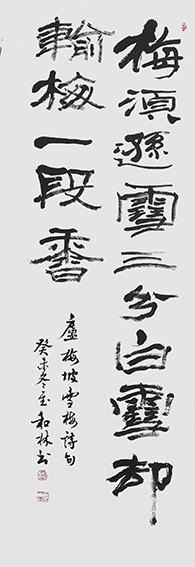 梅須遜雪三分白雪却
輸梅一段香
盧梅坡雪梅詩句
癸未冬至和林书